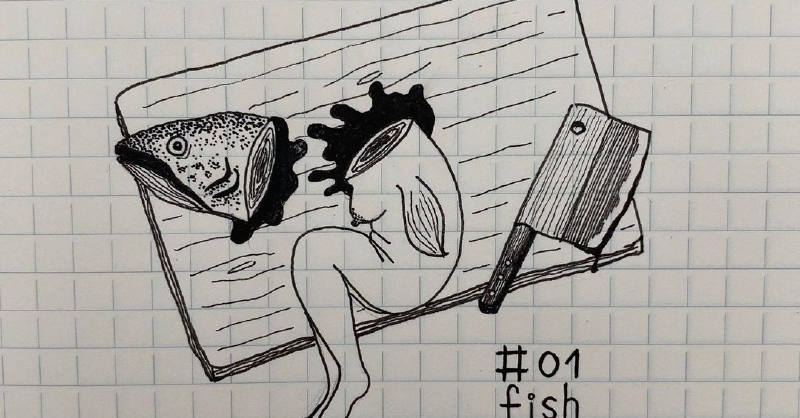 #01
fish